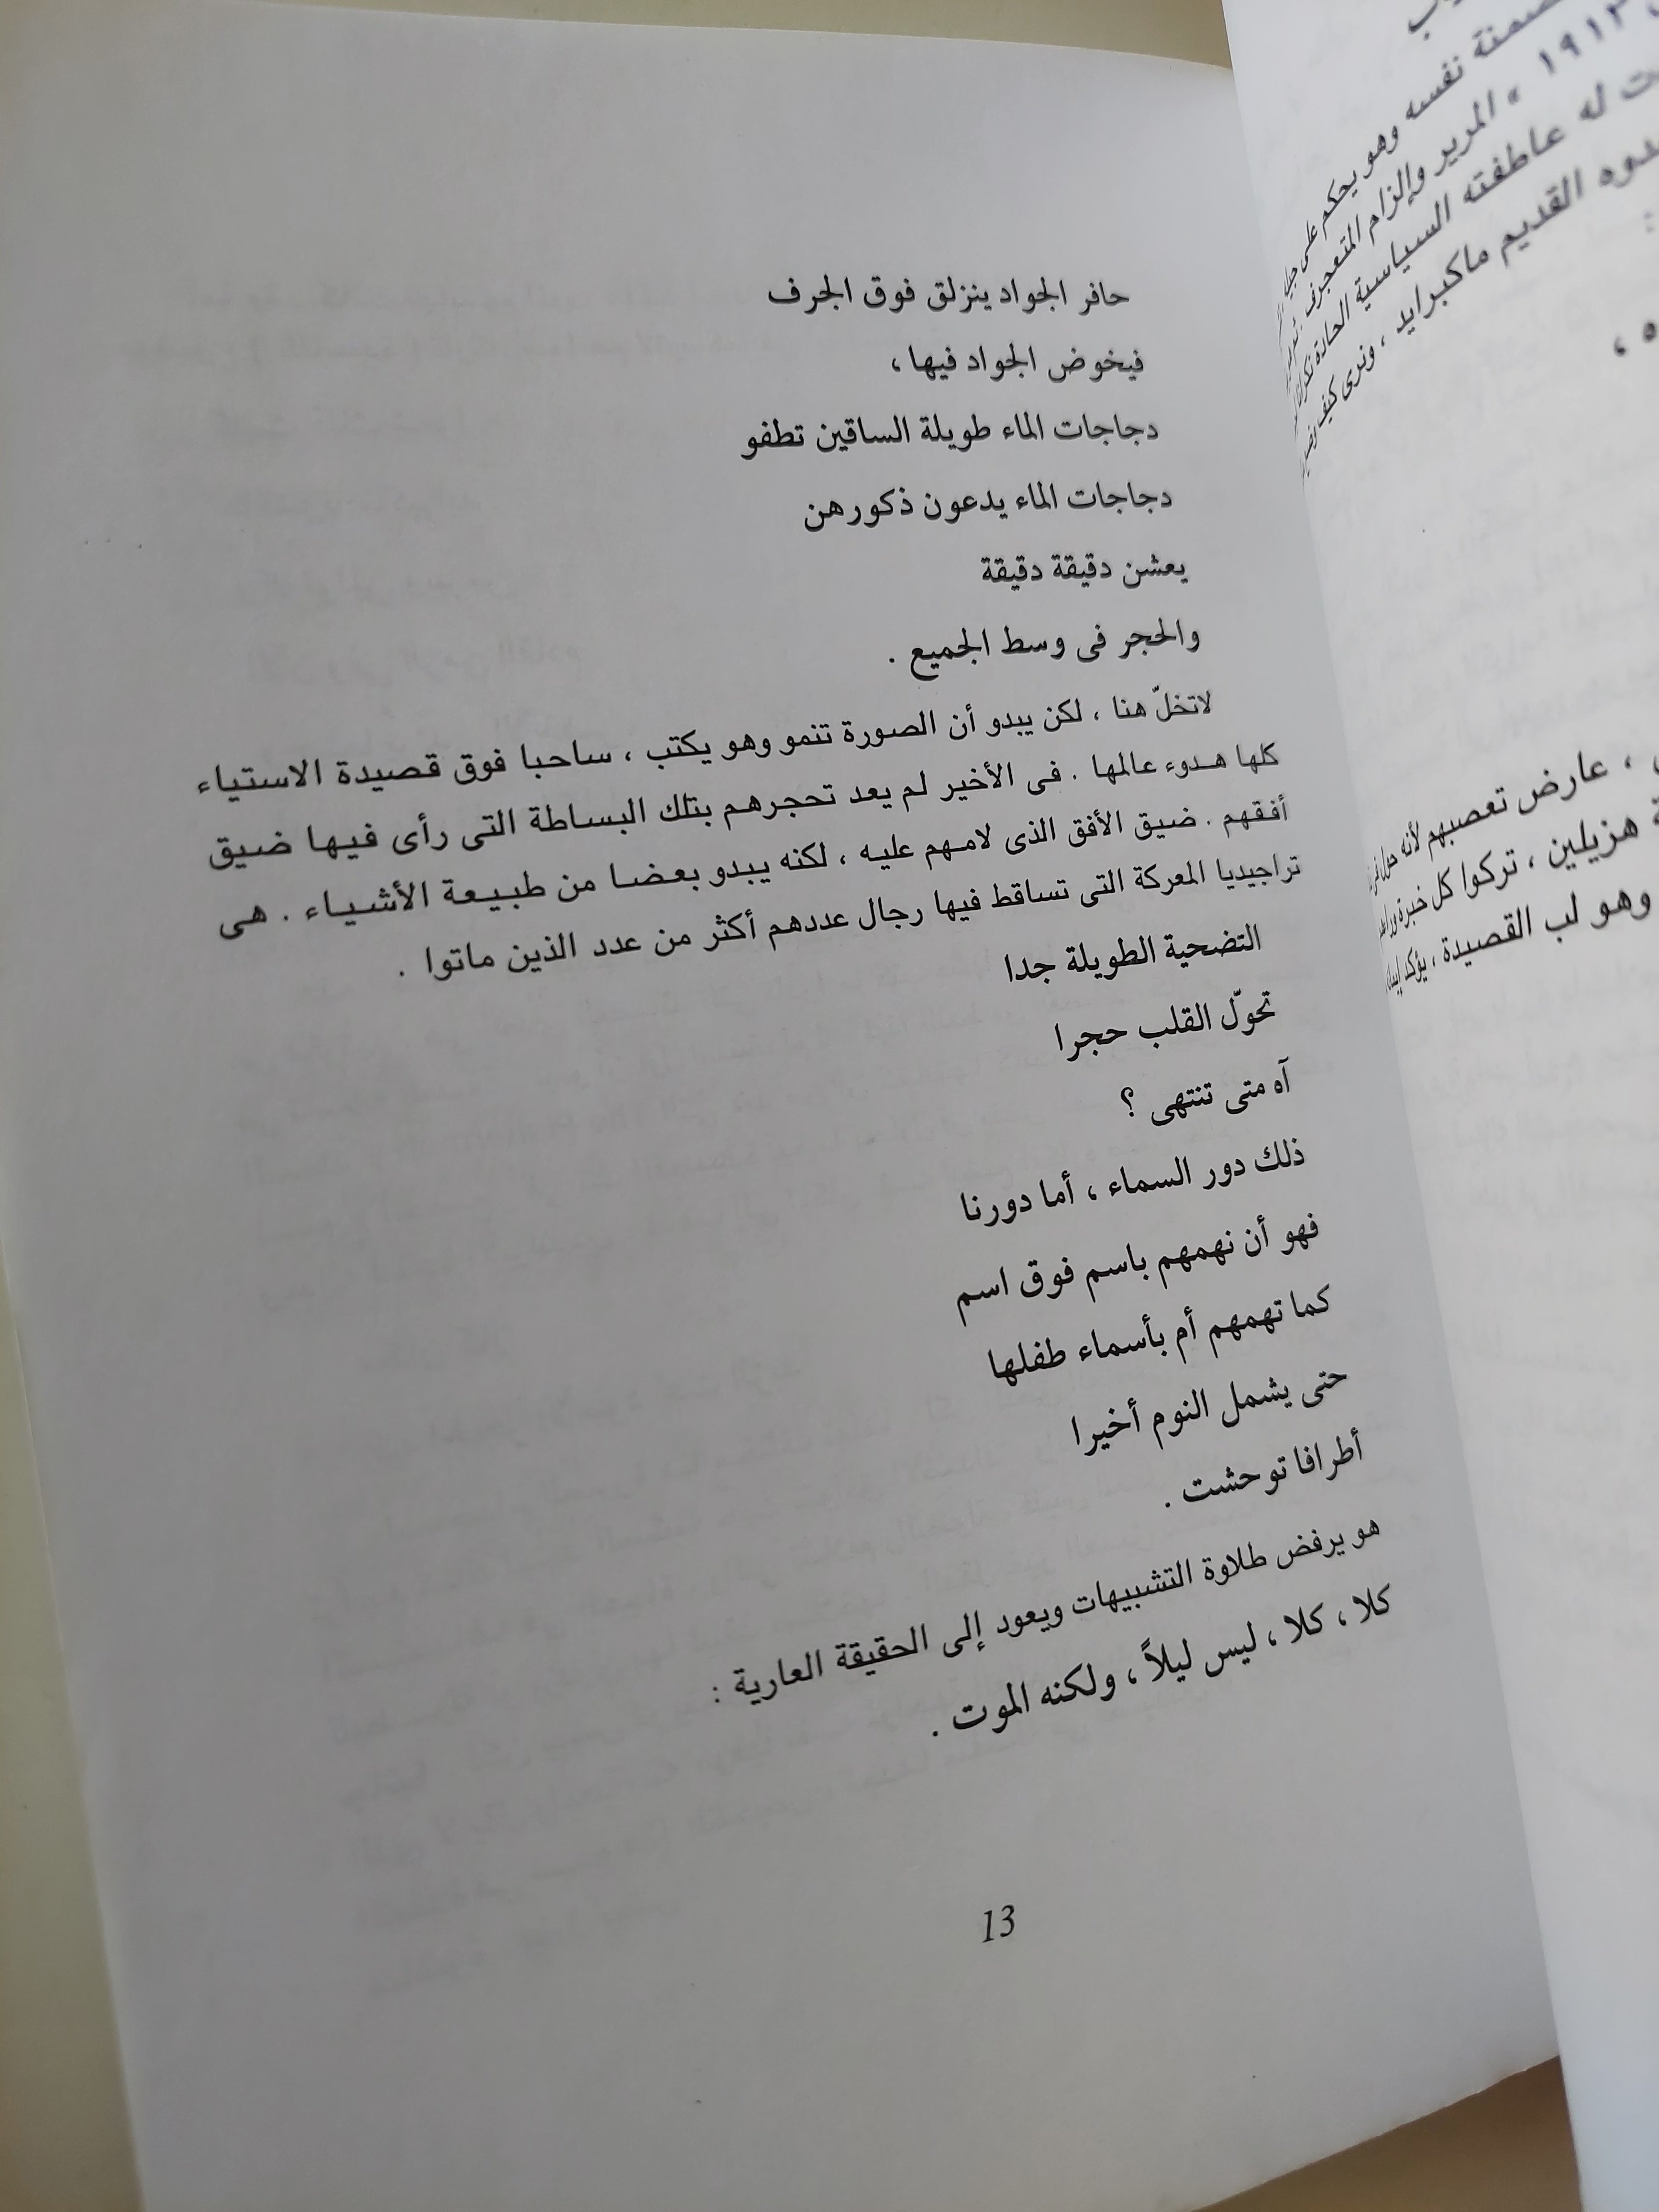 حافر الجواد ينزلق فوق الجرف
فيخوض الجواد فيها ،
دجاجات الماء طويلة الساقين تطفو
دجاجات الماء يدعون ذكورهن
يعشن دقيقة دقيقة
والحجر فى وسط الجميع .
لاتخلّ هنا ، لكن يبدو أن الصورة تنمو وهو يكتب ، ساحبا فوق قصيدة الاستياء
كلها هدوء عالمها . فى الأخير لم يعد تحجرهم بتلك البساطة التى رأى فيها ضيق
أفقهم . ضيق الأفق الذى لامهم عليه ، لكنه يبدو بعضا من طبيعة الأشياء . هى
تراجيديا المعركة التى تساقط فيها رجال عددهم أكثر من عدد الذين ماتوا .
التضحية الطويلة جدا
تحوّل القلب حجرا
آه متى تنتهى ؟
ذلك دور السماء ، أما دورنا
فهو أن نهمهم باسم فوق اسم
كما تهمهم أم بأسماء طفلها
حتى يشمل النوم أخيرا
أطرافا توحشت .
هو يرفض طلاوة التشبيهات ويعود إلى الحقيقة العارية :
كلا ، كلا ، ليس ليلاً ، ولكنه الموت .
13
نفسه وهو يحكم على
١٩١٣ » المرير وإلزام المتعجرف .
له عاطفته السياسية الحادة
القديم ماكبرايد ، ونرى كيف
، عارض تعصبهم لأنه حول
هزيلين ، تركوا كل خبرة
وهو لب القصيدة ، يؤكد